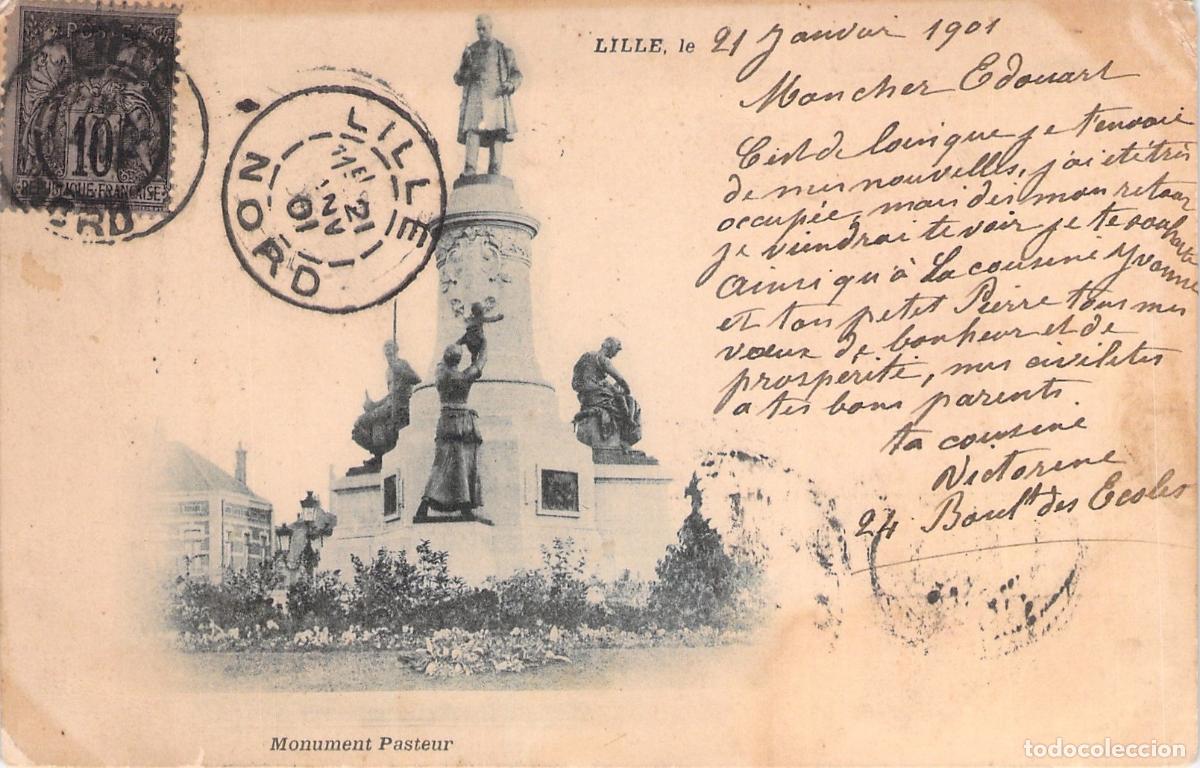 POSTES
10
RÉPUBLIQUE FRANÇAISE
ORD
LILLE
21
JANV
01
NORD
LILLE, le 21 Janvier 1901
Mon cher Edouart
C'est de loin que je t'envoie
de mes nouvelles, j'ai été très
occupée, mais dès mon retour
je viendrai te voir je te souhaite
ainsi qu'à La cousine Yvonne
et ton petit Pierre tous mes
vœux de bonheur et de
prosperité, mes civilités
a tes bons parents.
ta cousine
Victorine
24 Boult des Ecoles
Monument Pasteur
todocoleccion